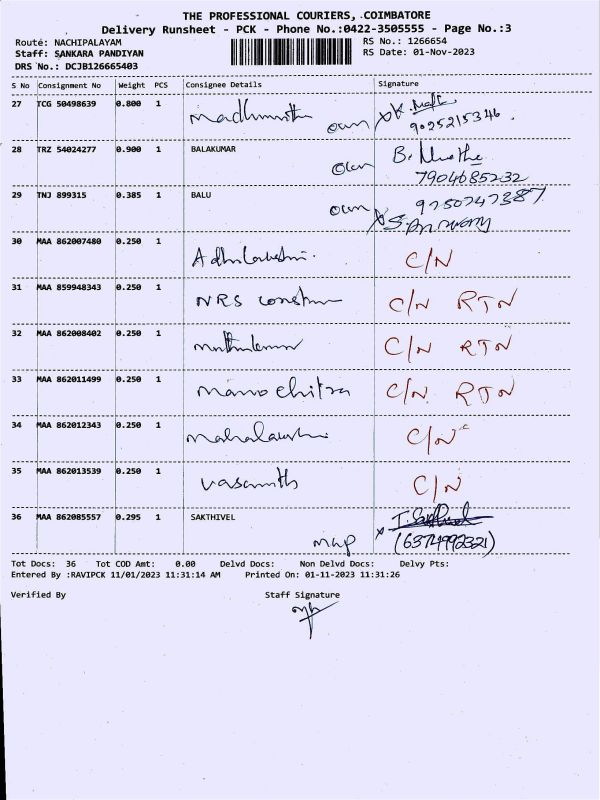 THE PROFESSIONAL COURIERS, COIMBATORE
Delivery Runsheet - PCK - Phone No.:0422-3505555 - Page No.:3
Route: NACHIPALAYAM RS No.: 1266654
Staff: SANKARA PANDIYAN RS Date: 01-Nov-2023
DRS No.: DCJB126665403
S No Consignment No Weight PCS Consignee Details Signature
27 TCG 50498639 0.800 1
own 9025215346
28 TRZ 54024277 0.900 1 BALAKUMAR
own 7904685232
29 TNJ 899315 0.385 1 BALU
own 9750747387
30 MAA 862007480 0.250 1 C/N
31 MAA 859948343 0.250 1 NRS C/N RTN
32 MAA 862008402 0.250 1 C/N RTN
33 MAA 862011499 0.250 1 manochitra C/N RTN
34 MAA 862012343 0.250 1 C/N
35 MAA 862013539 0.250 1 vasanth C/N
36 MAA 862085557 0.295 1 SAKTHIVEL
(6374992321)
Tot Docs: 36 Tot COD Amt: 0.00 Delvd Docs: Non Delvd Docs: Delvy Pts:
Entered By :RAVIPCK 11/01/2023 11:31:14 AM Printed On: 01-11-2023 11:31:26
Verified By Staff Signature